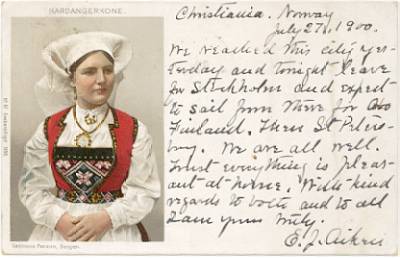 HARDANGERKONE.
Christiania. Norway
July 27, 1900.
We reached this city yes-
terday and tonight leave
for Stockholm and expect
to sail from there for
Finland. Then St Peters-
burg. We are all well.
Trust everything is pleas-
ant at home. With kind
regards to both and to all
I am yours truly.
E. J. Aiken